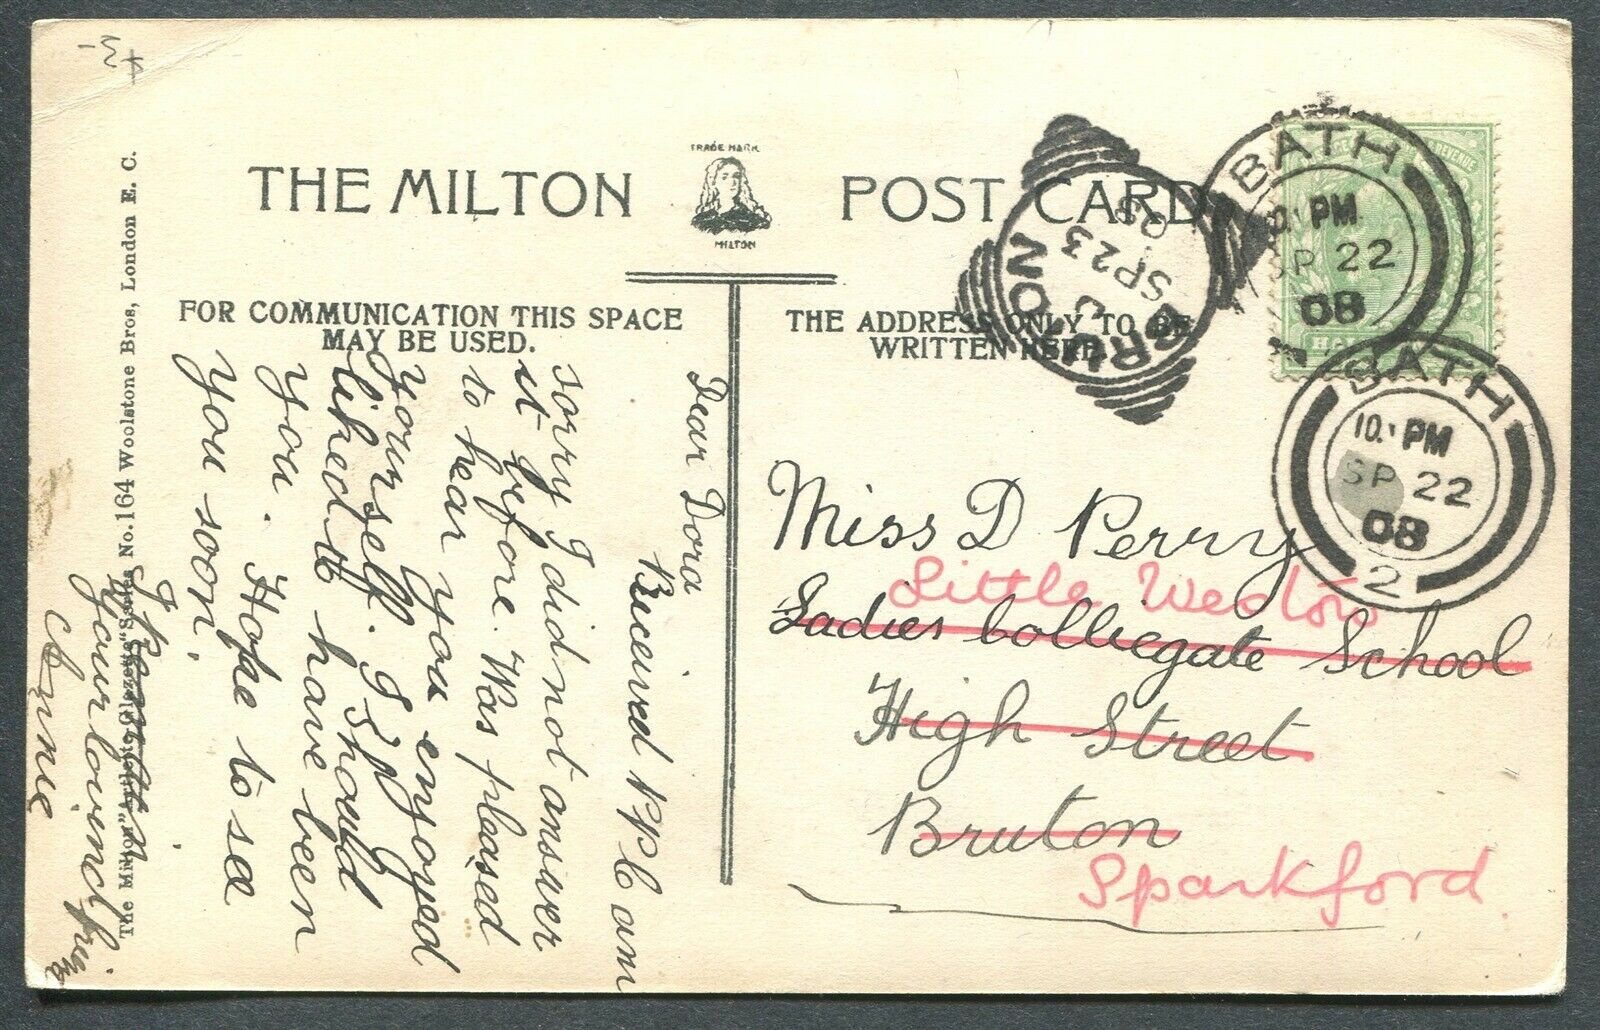 THE MILTON
TRADE MARK
MILTON
POST CARD
FOR COMMUNICATION THIS SPACE
MAY BE USED.
THE ADDRESS ONLY TO BE
WRITTEN HERE.
Dear Dora
Received P.P.C am
sorry I did not answer
it before. Was pleased
to hear you enjoyed
yourself. I should
liked to have been
you. Hope to se
you soon.
I remain
Your loving friend
Annie
The Milton "Artlette Glazette" Series No. 164 Woolstone Bros, London E. C.
Miss D Perry
Little Weston
Ladies Colliegate School
High Street
Bruton
Sparkford
BRUTON
SP 23
08
BATH
PM
SP 22
08
BATH
10. PM
SP 22
08
2